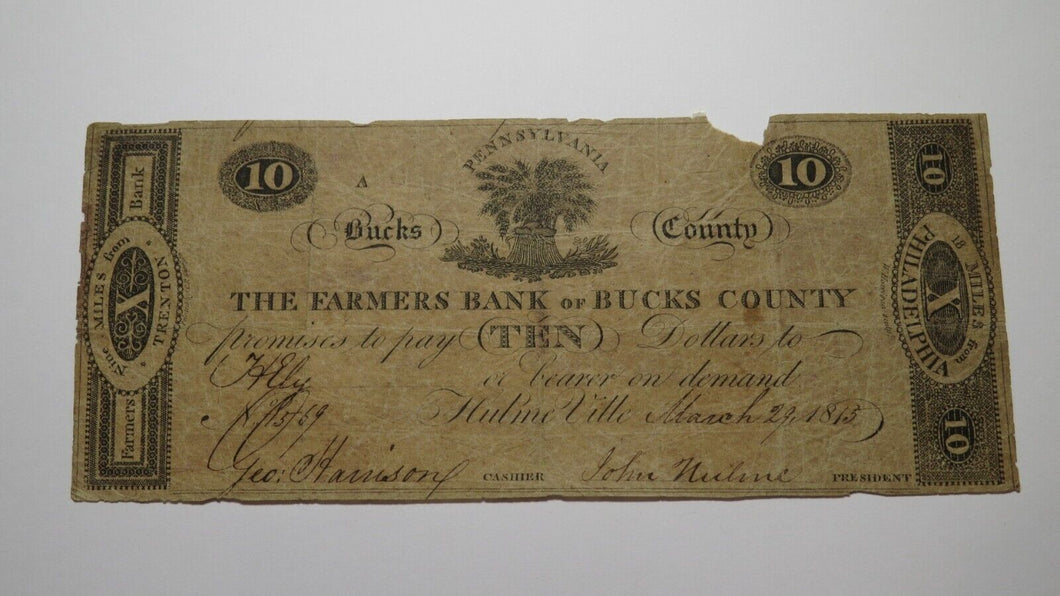 PENNSYLVANIA
10 A 10
Bucks County
THE FARMERS BANK OF BUCKS COUNTY
promises to pay TEN Dollars to
H Ely or bearer on demand
Hulme Ville March 29, 1815
Geo: Harrison CASHIER John Hulme PRESIDENT
Farmers Bank
Nine MILES from TRENTON
X
10
18 MILES from PHILADELPHIA
X
10